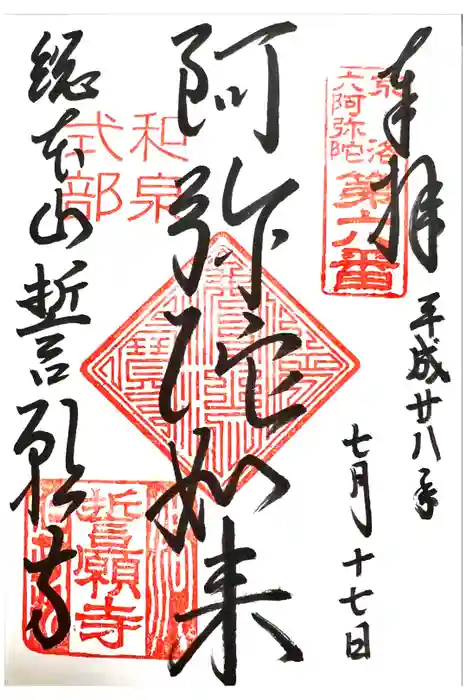 奉拝
京洛
六阿弥陀
第六番
平成廿八年
七月十七日
阿弥陀如来
和泉
式部
総本山誓願寺
誓願寺